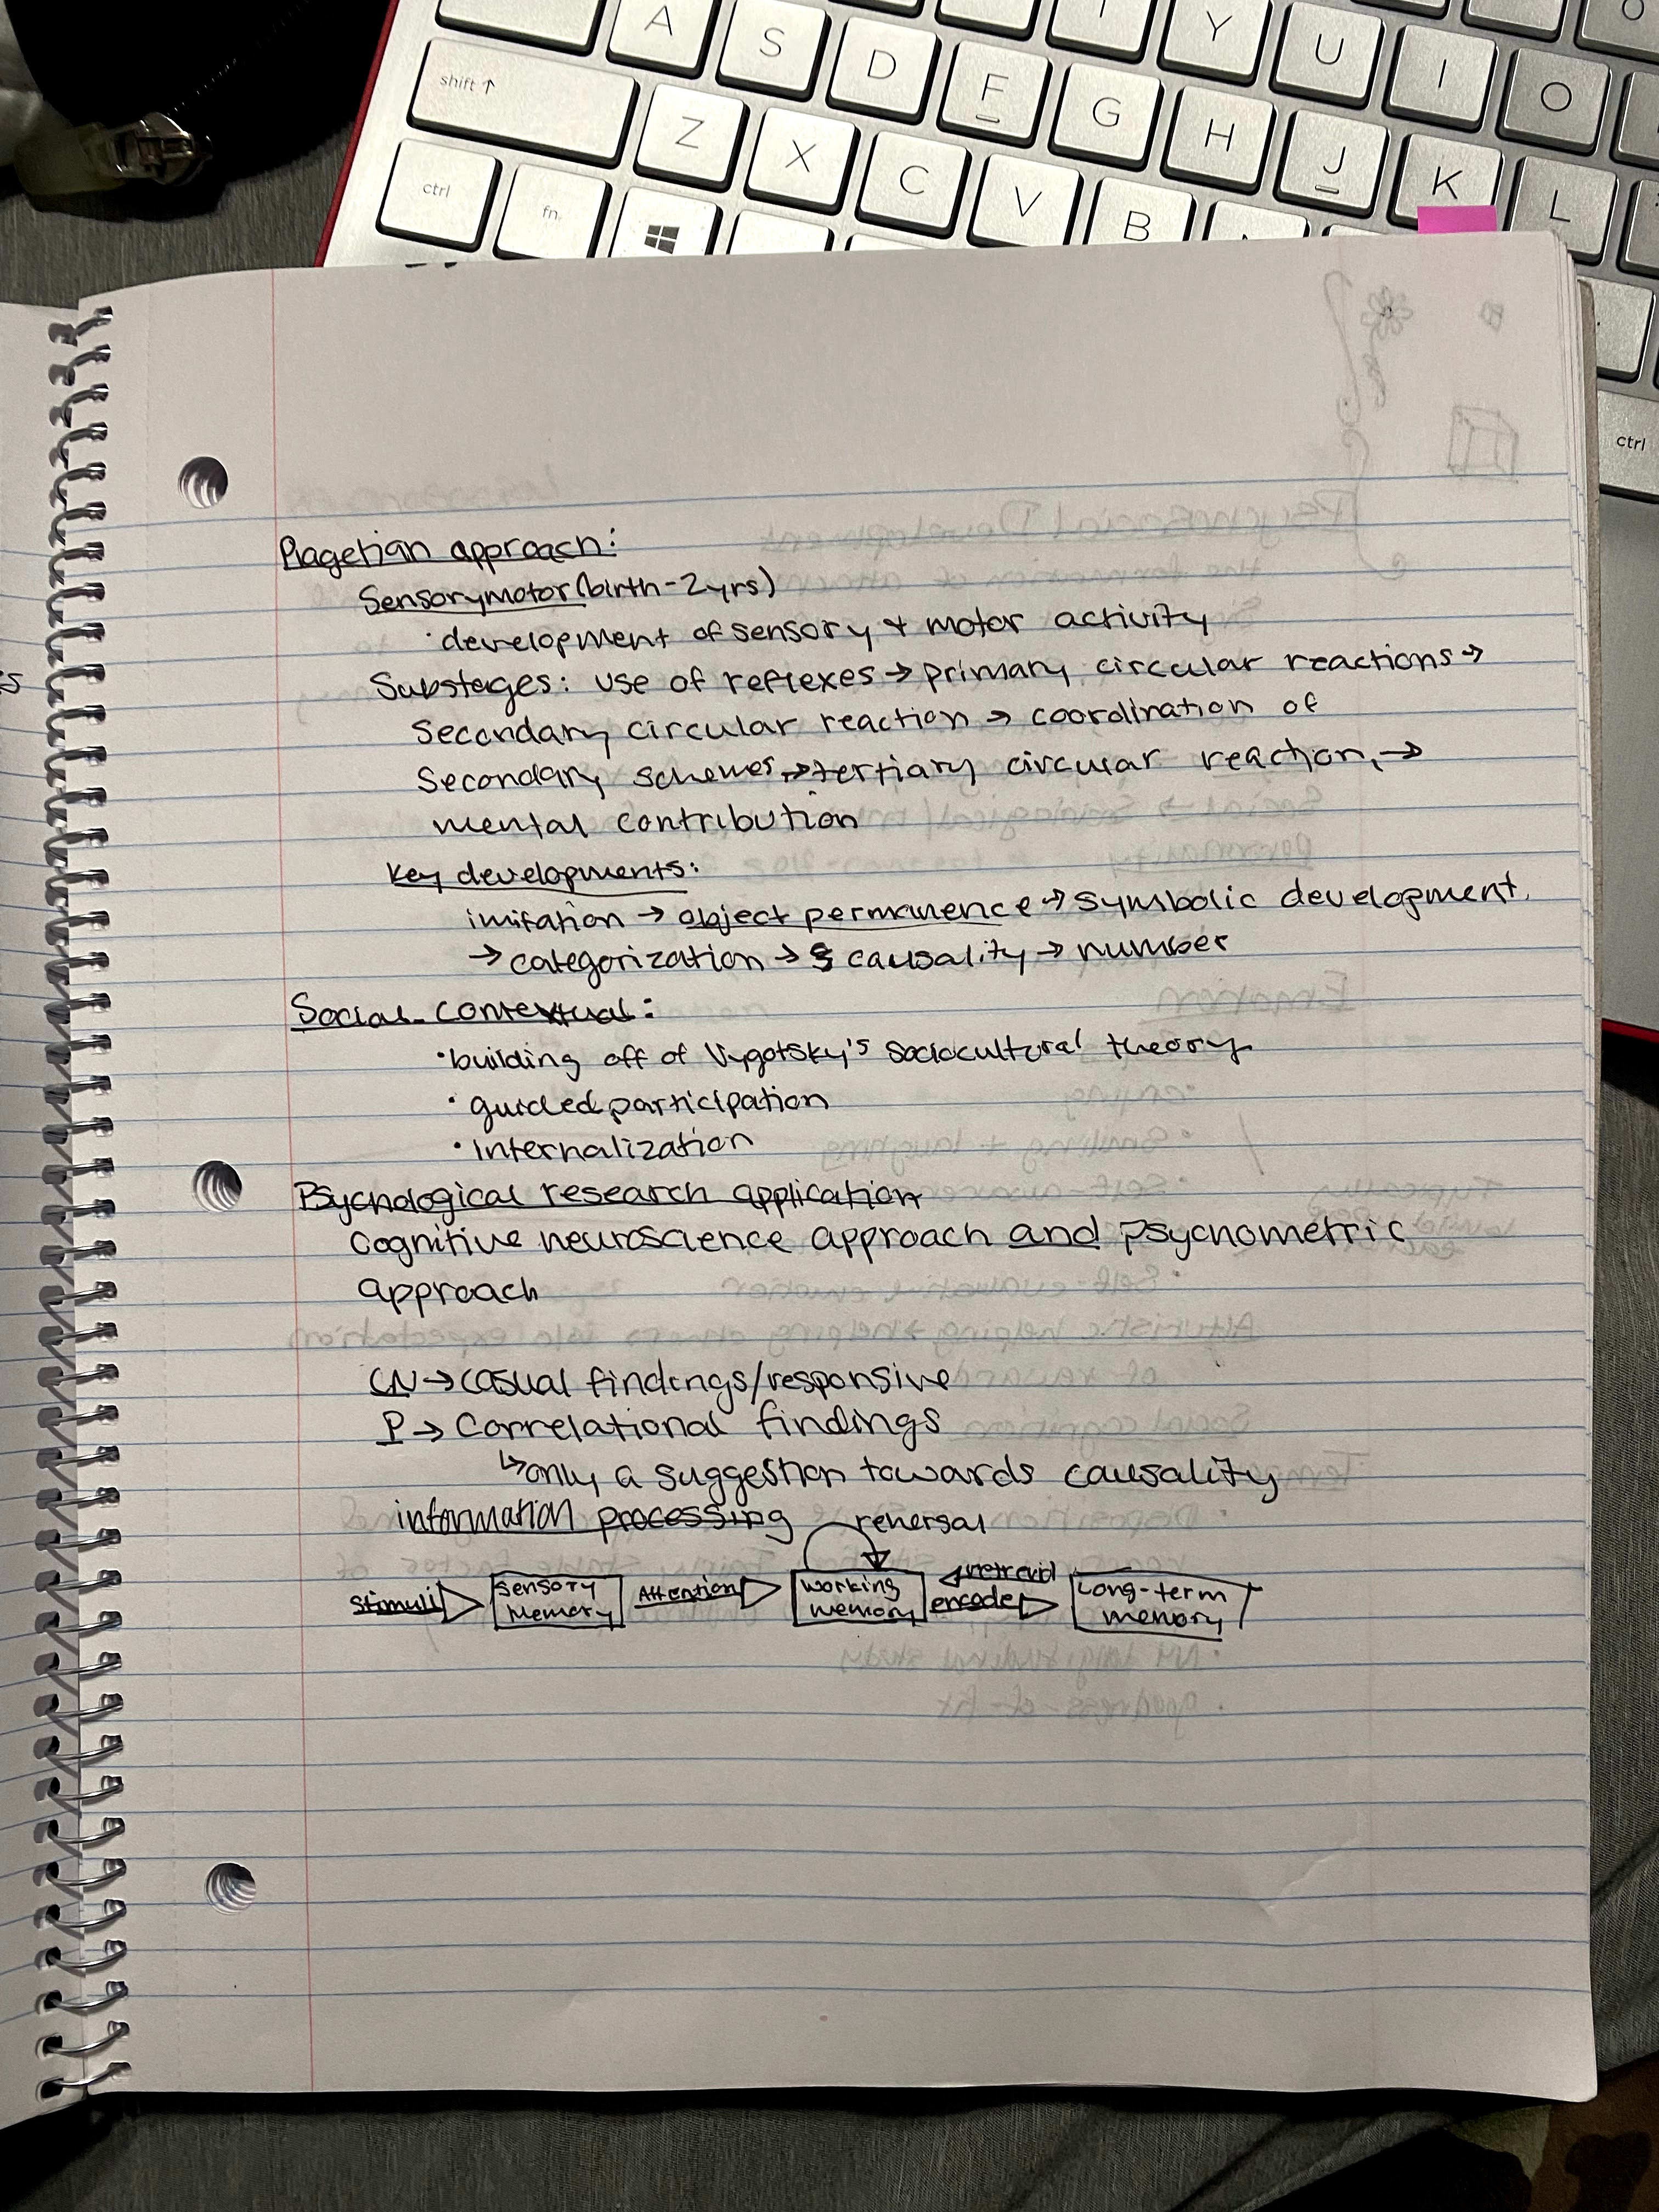 A S D F G Y U I O
shift ↑ Z X C G H J K L
ctrl fn V B
ctrl
Piagetian approach:
Sensorymotor (birth-2yrs)
• development of sensory & motor activity
Substages: use of reflexes → primary circular reactions →
Secondary circular reaction → coordination of
Secondary schemes → tertiary circular reaction, →
mental contribution
Key developments:
imitation → object permanence → symbolic development
→ categorization → causality → number
Social-contextual:
• building off of Vygotsky's sociocultural theory
• guided participation
• Internalization
Psychological research application
Cognitive neuroscience approach and psychometric
approach
CN → casual findings/responsive
P → Correlational findings
↳ only a suggestion towards causality
information processing
rehersal
stimuli Sensory Memory Attention working memory encode Long-term memory